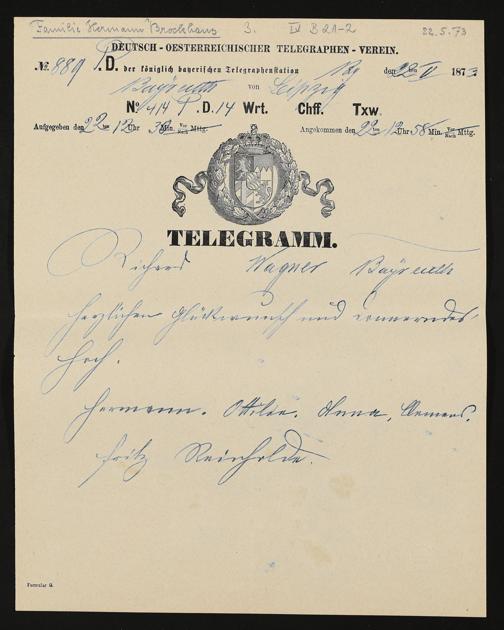 Familie Hermann Brockhaus 3. IV B 21-2 22.5.73
DEUTSCH-OESTERREICHISCHER TELEGRAPHEN-VEREIN.
№ 889 P.D. der königlich bayerischen Telegraphenstation Bg den 22ten V 1873
Bayreuth von Leipzig
№ 414 P.D. 14 Wrt. Chff. Txw.
Aufgegeben den 22ten 12 Uhr 38 Min. Vor Nach Mttg. Angekommen den 22ten 12 Uhr 58 Min. Vor Nach Mttg.
TELEGRAMM.
Richard Wagner Bayreuth
herzlichen Glückwunsch und donnerndes
hoch.
Hermann. Ottilie. Anna, Clemens.
Fritz Reinholde.
Formular G.